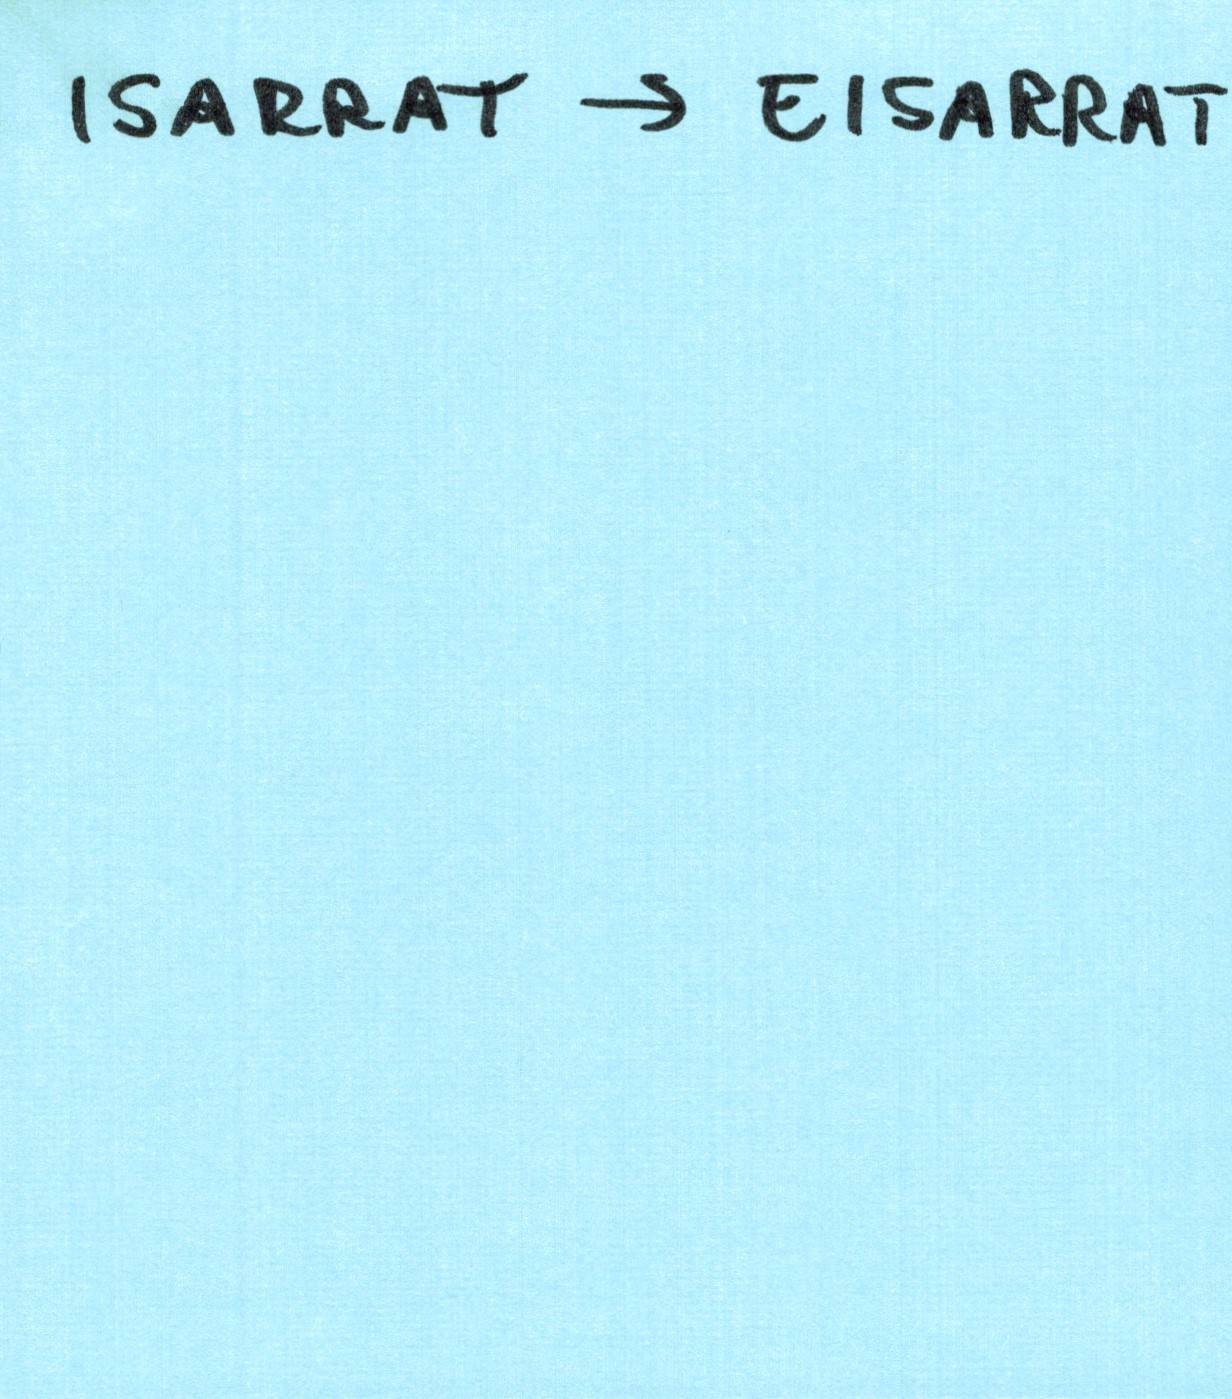 ISARRAT → EISARRAT